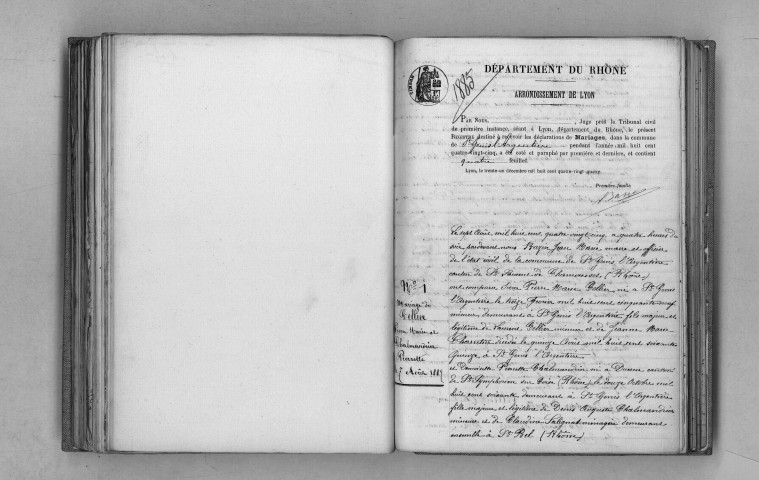 DÉPARTEMENT DU RHÔNE
ARRONDISSEMENT DE LYON
1885
TIMBRE
PAR NOUS, , Juge près le Tribunal civil
de première instance, séant à Lyon, département du Rhône, le présent
REGISTRE destiné à recevoir les déclarations de Mariages, dans la commune
de St Genis l'Argentière pendant l'année mil huit cent
quatre-vingt-cinq, a été coté et paraphé par première et dernière, et contient
quatre feuillets
Lyon, le trente-un décembre mil huit cent quatre-vingt-quatre.
Première feuille.
Le sept Août mil huit cent quatre vingt cinq, à quatre heures du
soir pardevant nous Jean Marie maire et officier
de l'état civil de la commune de St Genis l'Argentière
canton de St Laurent de Chamousset (Rhône)
ont comparu Pierre Marie Bellier né à St Genis
l'Argentière le Février mil huit cent cinquante neuf
mineur demeurant à St Genis l'Argentière fils majeur et
légitime de Bellier mineur et de Jeanne Marie
décédée le quinze Août mil huit cent soixante
quinze à St Genis l'Argentière
et Pierrette Chalmandrier née à Duerne canton
de St Symphorien sur Coise (Rhône) le douze Octobre mil
huit cent soixante demeurant à St Genis l'Argentière
fille majeure et légitime de Denis Auguste Chalmandrier
mineur et de Claudine ménagère demeurant
ensemble à St Bel (Rhône)
No 1
Mariage de
Bellier
Marie et
Chalmandrier
Pierrette
7 Août 1885